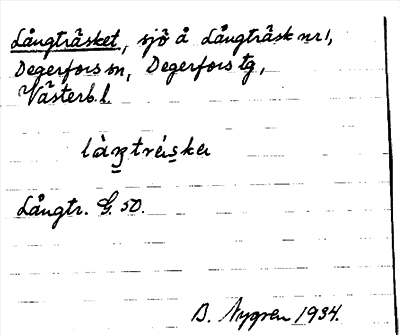 Långträsket, sjö å Långträsk nr 1,
Degerfors sn, Degerfors tg,
Västerb. l.
Långtr. G. 50.
B. Nygren 1934.